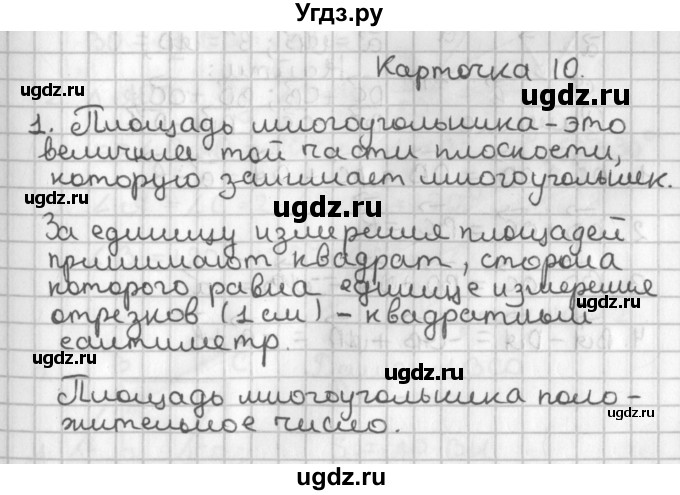 Угдз.ру
Карточка 10.
ugdz.ru
ugdz.ru
1. Площадь многоугольника - это
величина той части плоскости,
ugdz.ru
ugdz.ru
которую занимает многоугольник.
ugdz.ru
За единицу измерения площадей
принимают квадрат, сторона
ugdz.ru
которого равна единице измерения
отрезков (1 см) - квадратный
ugdz.ru
сантиметр.
ugdz.ru
Площадь многоугольника поло-
ugdz.ru
жительное число.
ugdz.ru
ugdz.ru
ugdz.ru